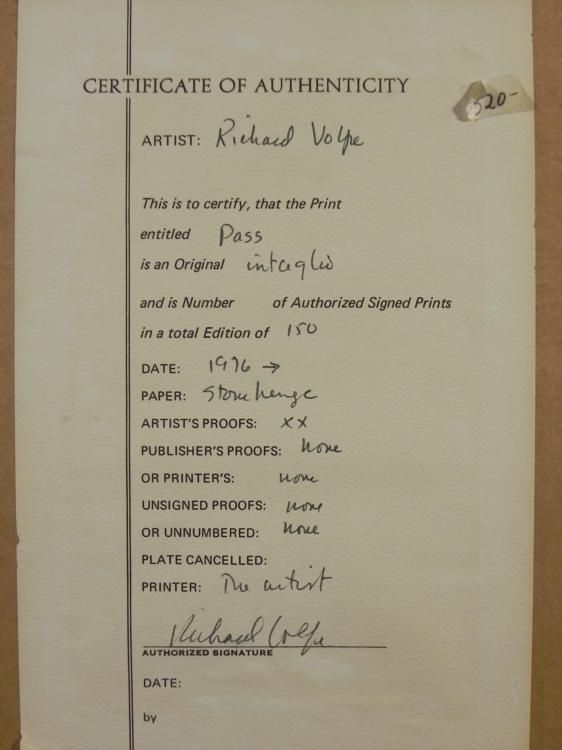 CERTIFICATE OF AUTHENTICITY
520-
ARTIST: Richard Volpe
This is to certify, that the Print
entitled Pass
is an Original intaglio
and is Number of Authorized Signed Prints
in a total Edition of 150
DATE: 1976 →
PAPER: Stonehenge
ARTIST'S PROOFS: XX
PUBLISHER'S PROOFS: None
OR PRINTER'S: none
UNSIGNED PROOFS: none
OR UNNUMBERED: None
PLATE CANCELLED:
PRINTER: The artist
Richard Volpe
AUTHORIZED SIGNATURE
DATE:
by